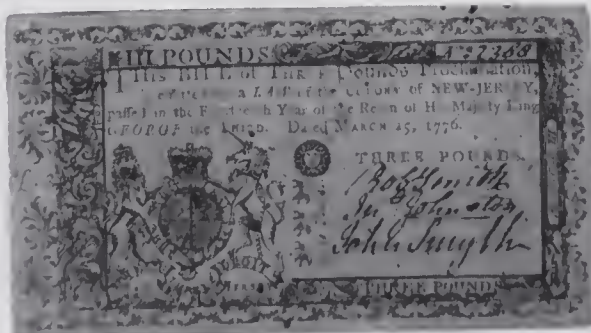 III POUNDS No. 2368
THIS BILL of THREE Pounds Proclamation,
a LAW of the COLONY of NEW-JERSEY,
passed in the Fourteenth Year of the Reign of His Majesty King
GEORGE the THIRD. Dated MARCH 25, 1776.
THREE POUNDS.
Robt Smith
Jno Johnston
John Smyth
DROIT
THREE POUNDS